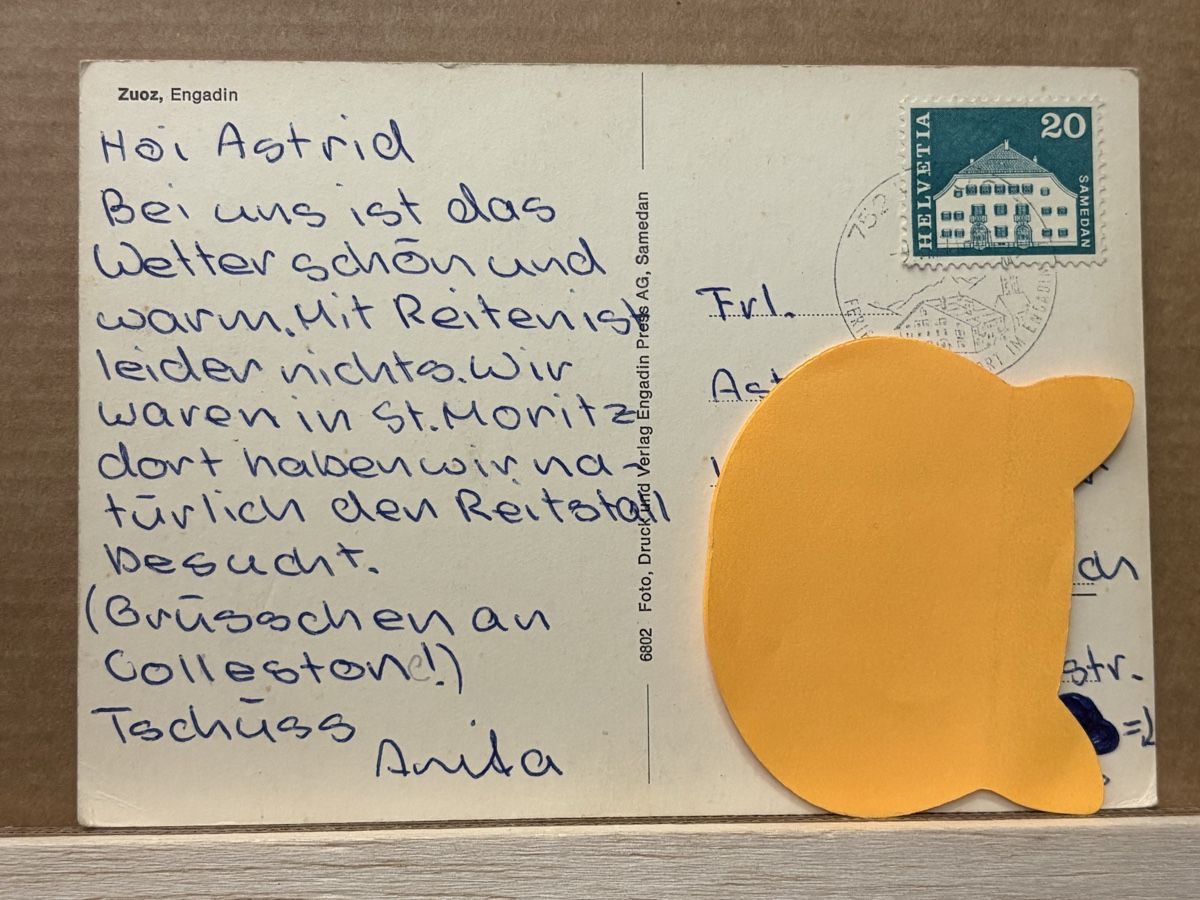 Zuoz, Engadin
Hoi Astrid
Bei uns ist das
Wetter schön und
warm. Mit Reiten ist
leider nichts. Wir
waren in St. Moritz
dort haben wir na-
türlich den Reitstall
besucht.
(Grüsschen an
Collestone!)
Tschüss
Anita
6802 Foto, Druck und Verlag Engadin Press AG, Samedan
HELVETIA
20
SAMEDAN
752
IM ENGADIN
Frl.
Ast
ch
str.